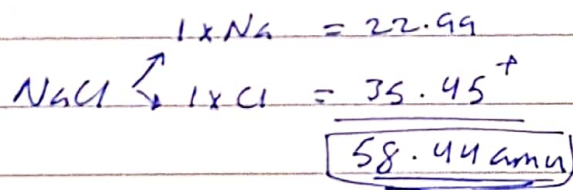 1 x Na = 22.99
NaCl 1 x Cl = 35.45 +
58.44 amu